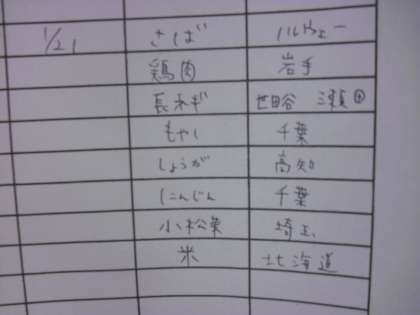 1/21 さば ノルウェー
鶏肉 岩手
長ネギ 世田谷 三須田
もやし 千葉
しょうが 高知
にんじん 千葉
小松菜 埼玉
米 北海道